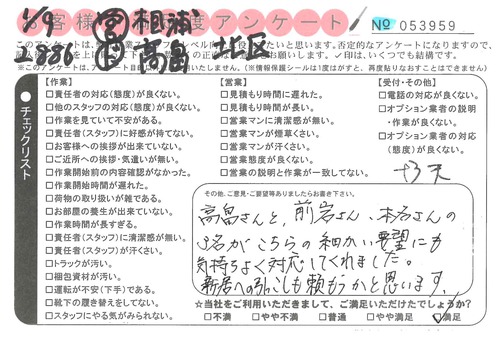 お客様 度アンケート
№ 053959
1/9
886
相浦
高畠
北区
このアンケートは、
たいと思います。否定的なアンケートになりますので、
お願いします。✓印は、いくつでも結構です。
いたしません。（※情報保護シールは1度はがすと、再度貼りなおすことはできません）
●チェックリスト
【作業】
□責任者の対応(態度)が良くない。
□他のスタッフの対応(態度)が良くない。
□作業を見ていて不安がある。
□責任者(スタッフ)に好感が持てない。
□お客様への挨拶が出来ていない。
□ご近所への挨拶・気遣いが無い。
□作業開始前の内容確認がなかった。
□作業開始時間が遅れた。
□荷物の取り扱いが雑である。
□お部屋の養生が出来ていない。
□作業時間が長すぎる。
□責任者(スタッフ)に清潔感が無い。
□責任者(スタッフ)が汗くさい。
□トラックが汚い。
□梱包資材が汚い。
□運転が不安(下手)である。
□靴下の履き替えをしてない。
□スタッフにやる気がみられない。
【営業】
□見積もり時間に遅れた。
□見積もり時間が長い。
□営業マンに清潔感が無い。
□営業マンが煙草くさい。
□営業マンが汗くさい。
□営業態度が良くない。
□営業の説明と作業が一致してない。
【受付・その他】
□電話の対応が良くない。
□オプション業者の説明
・作業が良くない。
□オプション業者の対応
(態度)が良くない。
その他、ご意見・ご要望等ありましたらお書き下さい。
高畠さんと、前岩さん、本名さんの
3名がこちらの細かい要望にも
気持ちよく対応してくれました。
新居への引こしも頼もうかと思います。
☆当社をご利用いただきまして、ご満足いただけたでしょうか？
□不満 □やや不満 □普通 □やや満足 ☑満足